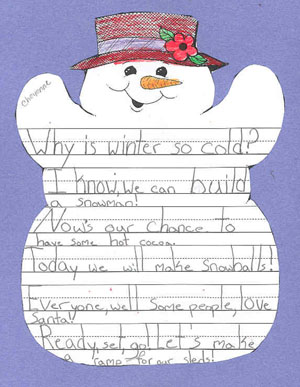 Cheyenne
Why is winter so cold?
I know, we can build
a snowman!
Now's our chance to
have some hot cocoa.
Today we will make snowballs!
Everyone, well some people, love
Santa!
Ready, set, go! Let's make
a ramp for our sleds!